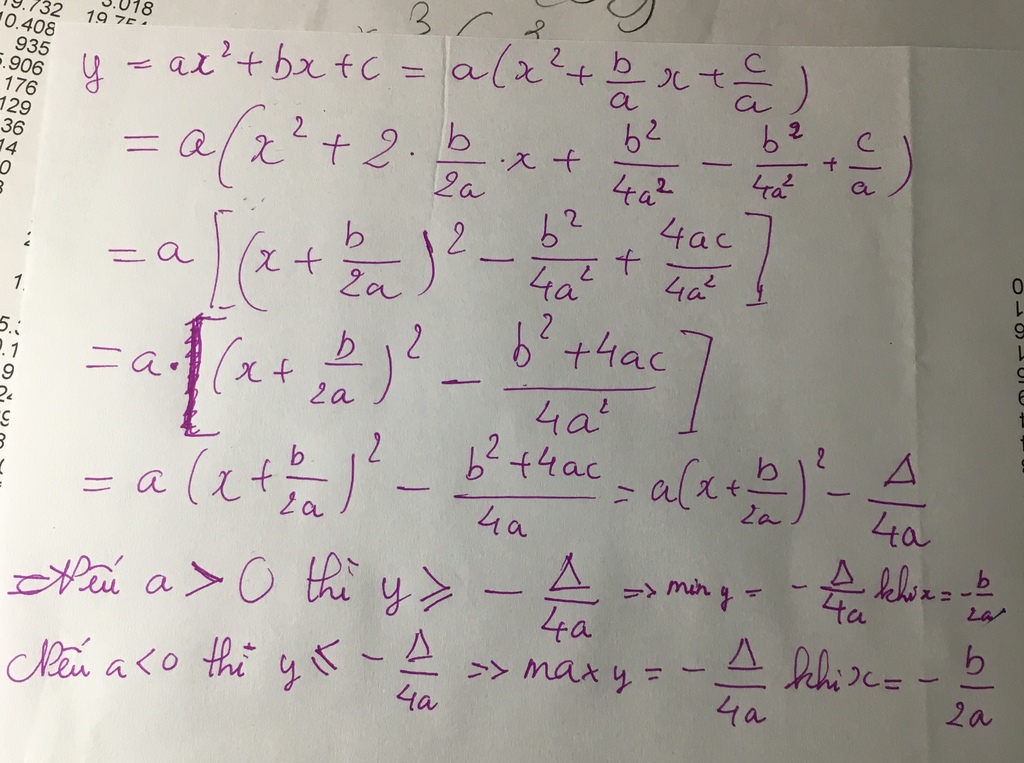 19.732 3.018
10.408 19.754
935
5.906
176
129
36
14
y = ax² + bx + c = a(x² + b/a x + c/a)
= a(x² + 2 · b/2a · x + b²/4a² - b²/4a² + c/a)
= a[(x + b/2a)² - b²/4a² + 4ac/4a²]
= a·[(x + b/2a)² - b² + 4ac/4a²]
= a(x + b/2a)² - b² + 4ac/4a = a(x + b/2a)² - Δ/4a
Nếu a > 0 thì y ⩾ - Δ/4a => min y = - Δ/4a khi x = - b/2a
Nếu a < 0 thì y ⩽ - Δ/4a => max y = - Δ/4a khi x = - b/2a